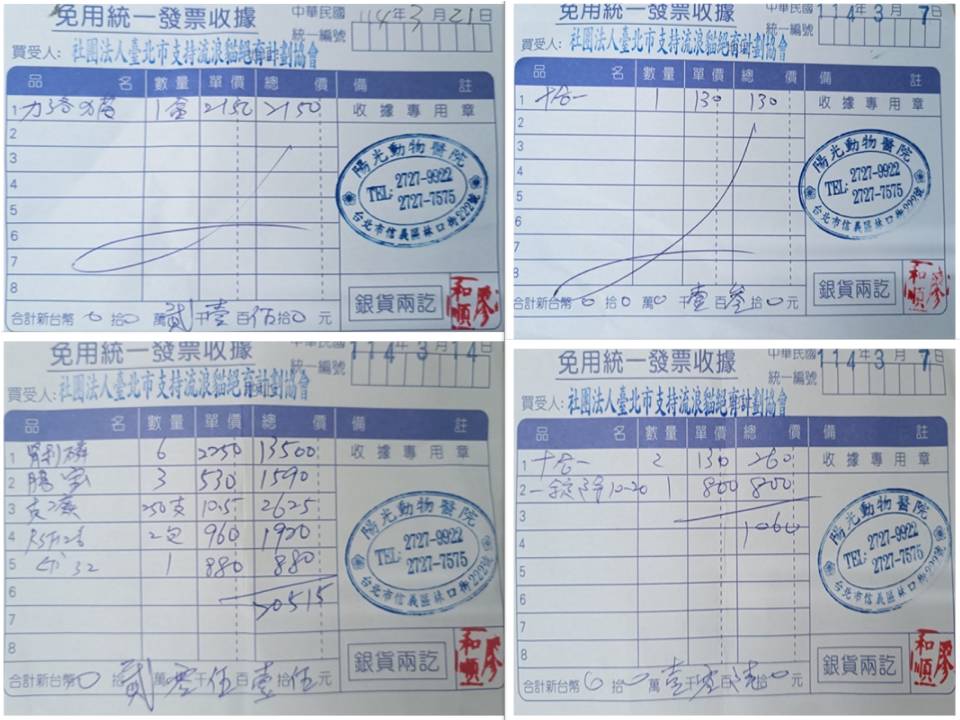 免用統一發票收據
中華民國 114年3月21日
統一編號
買受人: 社團法人臺北市支持流浪貓絕育計劃協會
品名 數量 單價 總價 備註
1 1盒 2150 2150 收據專用章
2
3
4
5
6
7
8
陽光動物醫院
TEL: 2727-9922
2727-7575
台北市信義區林口街222號
銀貨兩訖
和順 廖
合計新台幣 0 拾 0 萬 貳 千 壹 百 伍 拾 0 元
免用統一發票收據
中華民國 114年3月7日
統一編號
買受人: 社團法人臺北市支持流浪貓絕育計劃協會
品名 數量 單價 總價 備註
1 十合一 1 130 130 收據專用章
2
3
4
5
6
7
8
陽光動物醫院
TEL: 2727-9922
2727-7575
台北市信義區林口街222號
銀貨兩訖
和順 廖
合計新台幣 0 拾 0 萬 0 千 壹 百 參 拾 0 元
免用統一發票收據
中華民國 114年3月14日
統一編號
買受人: 社團法人臺北市支持流浪貓絕育計劃協會
品名 數量 單價 總價 備註
1 腎利磷 6 2250 13500 收據專用章
2 腸寶 3 530 1590
3 250支 10.5 2625
4 2包 960 1920
5 1 880 880
6 20515
7
8
陽光動物醫院
TEL: 2727-9922
2727-7575
台北市信義區林口街222號
銀貨兩訖
和順 廖
合計新台幣 0 拾 貳 萬 零 千 伍 百 壹 拾 伍 元
免用統一發票收據
中華民國 114年3月7日
統一編號
買受人: 社團法人臺北市支持流浪貓絕育計劃協會
品名 數量 單價 總價 備註
1 十合一 2 130 260 收據專用章
2 一錠除 10-20 1 800 800
3
4 1060
5
6
7
8
陽光動物醫院
TEL: 2727-9922
2727-7575
台北市信義區林口街222號
銀貨兩訖
和順 廖
合計新台幣 0 拾 0 萬 壹 千 零 百 陸 拾 0 元